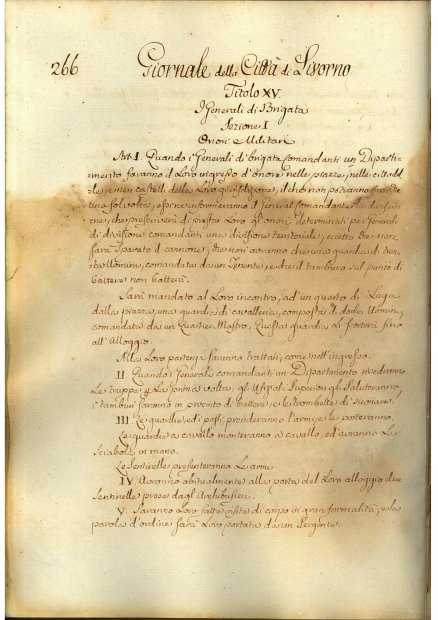 266
Giornale della Città di Livorno
Titolo XV.
I Generali di Brigata
Sezione I
Onori e Militari
Art. I. Quando i Generali di brigata comandanti un Diparti-
mento faranno il Loro ingresso d'onore nelle piazze, nelle cittadel-
le, e nei castelli della Loro giurisdizione, il che non potranno fare che
una sol volta, essi ne informeranno il General comandante la divisio-
ne, che prescriverà di prestar Loro gl'onori determinati pe' Generali
di divisione comandanti una divisione territoriale, eccetto che non
sarà sparato il cannone, che non avranno che una guardia di tren-
ta Uomini, comandata da un Tenente, e che il tamburo sul punto di
battere non batterà.
Sarà mandato al Loro incontro, ad un quarto di Lega
dalla piazza, una guardia di cavalleria, composta di dodici Uomini,
comandata da un Quartier Mastro. Questa guardia Li scorterà fino
all'Alloggio.
Alla Loro partenza saranno trattati, come nell'ingresso.
II Quando i Generali comandanti un Dipartimento vedranno
Le truppe p La prima volta, gli Uffiziali Superiori gli Saluteranno,
i tamburi saranno in procinto di battere, e le trombette di suonare.
III Le guardie, ed i posti prenderanno l'armi, e le porteranno.
Le guardie a cavallo monteranno a cavallo, ed avranno La
Sciabola in mano.
Le Sentinelle presenteranno Le armi
IV Avranno abitualmente alla porta del Loro alloggio due
Sentinelle prese dagl'Archibusieri.
V. Saranno Loro fatte visite di corpo in gran formalità, e la
parola d'ordine sarà Loro portata da un Sergente.